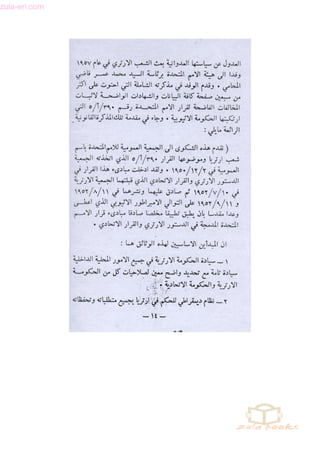 zula-eri.com
العدول عن سياستها العدوانية بعث الشعب الارتري في عام ١٩٥٧
وفدا الى هيئة الامم المتحدة برئاسة السيد محمد عمر قاضي
المحامي ٠ وقدم الوفد في مذكرته الشاملة التي احتوت على اكثر
من سبعين صفحة كافة البيانات والشهادات الواضحة لاثبات
المخالفات الفاضحة لقرار الامم المتحدة رقم ٣٩٠/أ/٥ التي
ارتكبتها الحكومة الاثيوبية ٠ وجاء في مقدمة تلك المذكرة القانونية
الرائعة مايلي :
( تقدم هذه الشكوى الى الجمعية العمومية للامم المتحدة باسم
شعب ارتريا وموضوعها القرار ٣٩٠/أ/٥ الذي اتخذته الجمعية
العمومية في ١٩٥٠/١٢/٢ ٠ ولقد ادخلت مبادىء هذا القرار في
الدستور الارتري والقرار الاتحادي الذي قبلتهما الجمعية الارترية
في ١٩٥٢/٧/١٠ ثم صادق عليهما ونشرهما في ١٩٥٢/٨/١١
و ١٩٥٢/٩/١١ على التوالي الامبراطور الاثيوبي الذي اعطى
وعدا مقدسا بأن يطبق تطبيقا مخلصا صادقا مبادىء قرار الامم
المتحدة المدمجة في الدستور الارتري والقرار الاتحادي ٠
ان المبدأين الاساسيين لهذه الوثائق هما :
١ — سيادة الحكومة الارترية في جميع الامور المحلية الداخلية
سيادة تامة مع تحديد واضح معين لصلاحيات كل من الحكومة
الارترية والحكومة الاتحادية ٠
٢ — نظام ديمقراطي للحكم في ارتريا بجميع متطلباته وتحفظاته
— ١٤ —
zula-eri.com